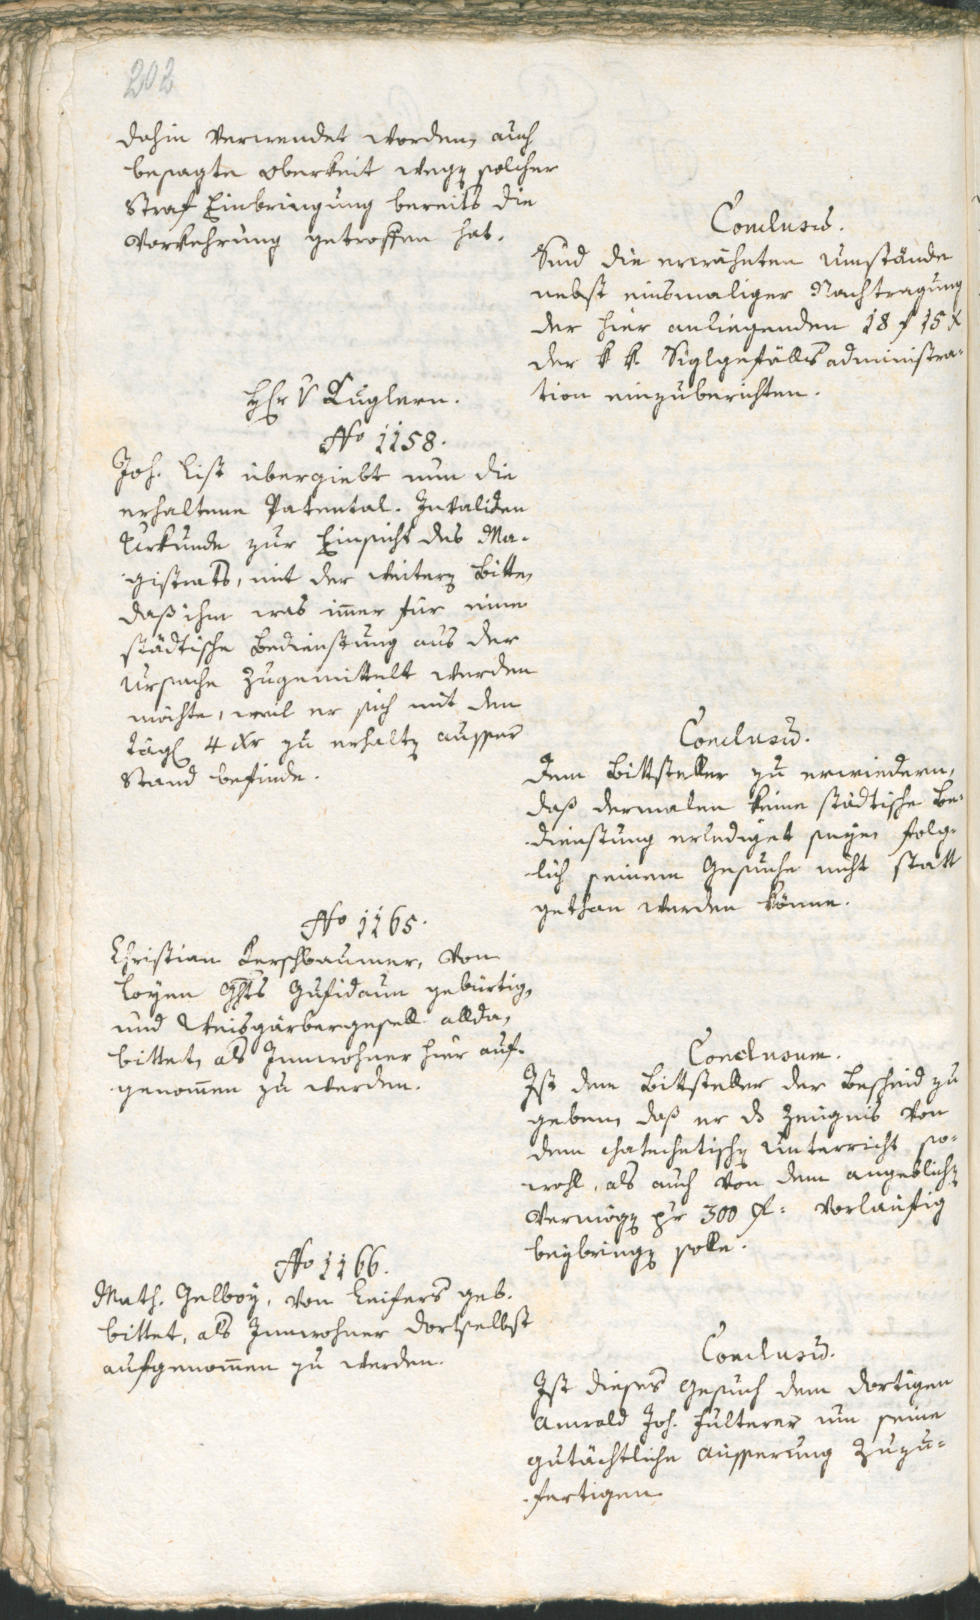 202
dahin verwendet worden, auch
besagte Oberkeit wegen solcher
Straf Einbringung bereits die
Vorkehrung getroffen hat.
Conclusum.
Sind die erwähnten Umstände
nebst einsmaliger Nachtragung
der hier anliegenden 18 f 15 x
der k k. Siglgefällsadministra-
tion einzuberichten.
Hr v Kuglern.
No 1158.
Joh. List übergiebt nun die
erhaltene Patental-Invaliden
Urkunde zur Einsicht des Ma-
gistrats, mit der weitern Bitte,
daß ihm was im̄er für eine
städtische Bedienstung aus der
Ursache zugemittelt werden
möchte, weil er sich mit den
tägl 4 Xr zu erhalten ausser
Stand befinde.
Conclusum.
Dem Bittsteller zu erwiedern,
daß dermalen keine städtische Be-
dienstung erlediget seye, folg-
lich seinem Gesuche nicht statt
gethan werden könne.
No 1165.
Christian Kerschbaumer, von
Loyen Ghts Gufidaun gebürtig,
und Weisgärbergesell allda,
bittet, als Innwohner hier auf-
genom̄en zu werden.
Conclusum.
Ist dem Bittsteller der Bescheid zu
geben, daß er ds Zeugnis von
dem chatechetischen Unterricht so-
wohl, als auch von dem angeblichen
Vermögen pr 300 f: vorläufig
beybringen solle.
No 1166.
Math. Gelboy, von Leifers geb.
bittet, als Innwohner dortselbst
aufgenom̄en zu werden.
Conclusum.
Ist dieses Gesuch dem dortigen
Anwald Joh. Fulterer um seine
gutächtliche Äusserung zuzu-
fertigen.